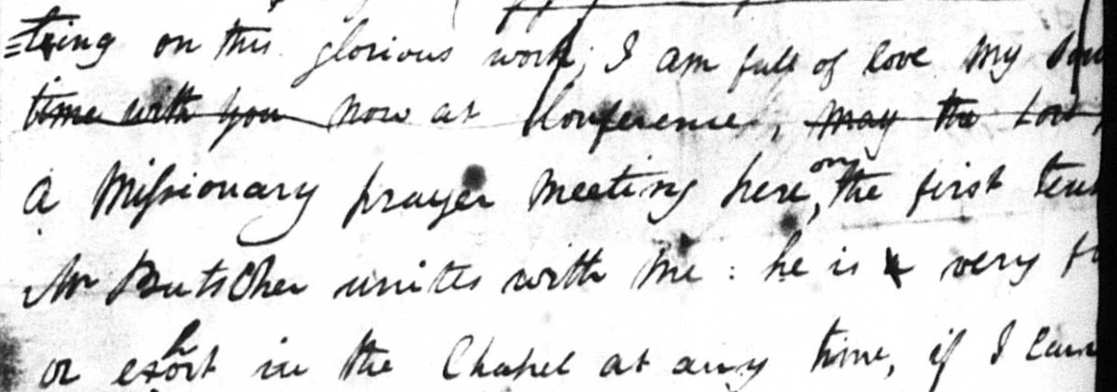 =ting on this glorious work; I am full of love my
time with you now at Conference, may the Lord
a Missionary prayer meeting here, on the first
Mr Butscher unites with me : he is very
or exhort in the Chapel at any time, if I can